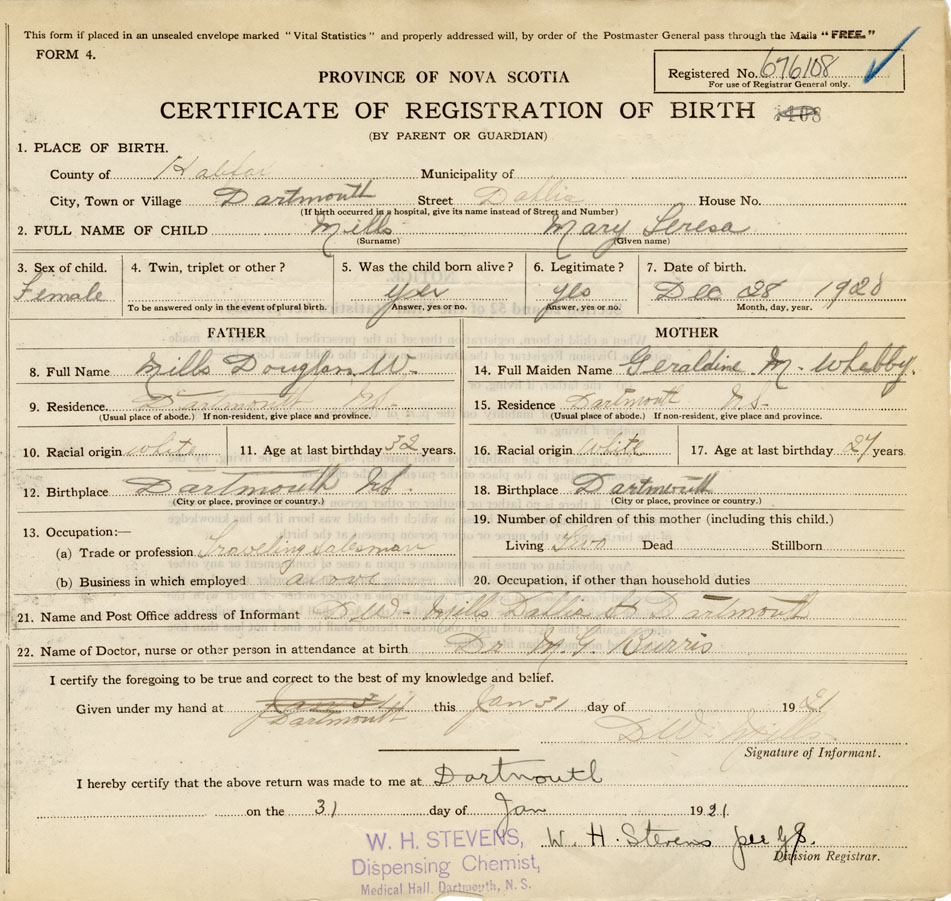 This form if placed in an unsealed envelope marked "Vital Statistics" and properly addressed will, by order of the Postmaster General pass through the Mails "FREE."
FORM 4.
Registered No. 676108
For use of Registrar General only.
PROVINCE OF NOVA SCOTIA
CERTIFICATE OF REGISTRATION OF BIRTH
(BY PARENT OR GUARDIAN)
1. PLACE OF BIRTH.
County of Halifax Municipality of
City, Town or Village Dartmouth Street Dahlia House No.
(If birth occurred in a hospital, give its name instead of Street and Number)
2. FULL NAME OF CHILD Mills Mary Teresa
(Surname) (Given name)
3. Sex of child. 4. Twin, triplet or other? 5. Was the child born alive? 6. Legitimate? 7. Date of birth.
Female Yes yes Dec 28 1920
To be answered only in the event of plural birth. Answer, yes or no. Answer, yes or no. Month, day, year.
FATHER
8. Full Name Mills Douglas W.
9. Residence. Dartmouth NS.
(Usual place of abode.) If non-resident, give place and province.
10. Racial origin white 11. Age at last birthday 32 years.
12. Birthplace Dartmouth NS.
(City or place, province or country.)
13. Occupation:—
(a) Trade or profession Traveling salesman
(b) Business in which employed above
MOTHER
14. Full Maiden Name Geraldine M. Whebby.
15. Residence Dartmouth N.S.
(Usual place of abode.) If non-resident, give place and province.
16. Racial origin white 17. Age at last birthday 27 years.
18. Birthplace Dartmouth
(City or place, province or country.)
19. Number of children of this mother (including this child.)
Living Two Dead Stillborn
20. Occupation, if other than household duties
21. Name and Post Office address of Informant D W Mills Dahlia St Dartmouth
22. Name of Doctor, nurse or other person in attendance at birth Dr M. G. Burris
I certify the foregoing to be true and correct to the best of my knowledge and belief.
Given under my hand at Dartmouth this Jan 31 day of 1921
D W. Mills
Signature of Informant.
I hereby certify that the above return was made to me at Dartmouth
on the 31 day of Jan 1921
W. H. Stevens per
Division Registrar.
W. H. STEVENS,
Dispensing Chemist,
Medical Hall, Dartmouth, N. S.